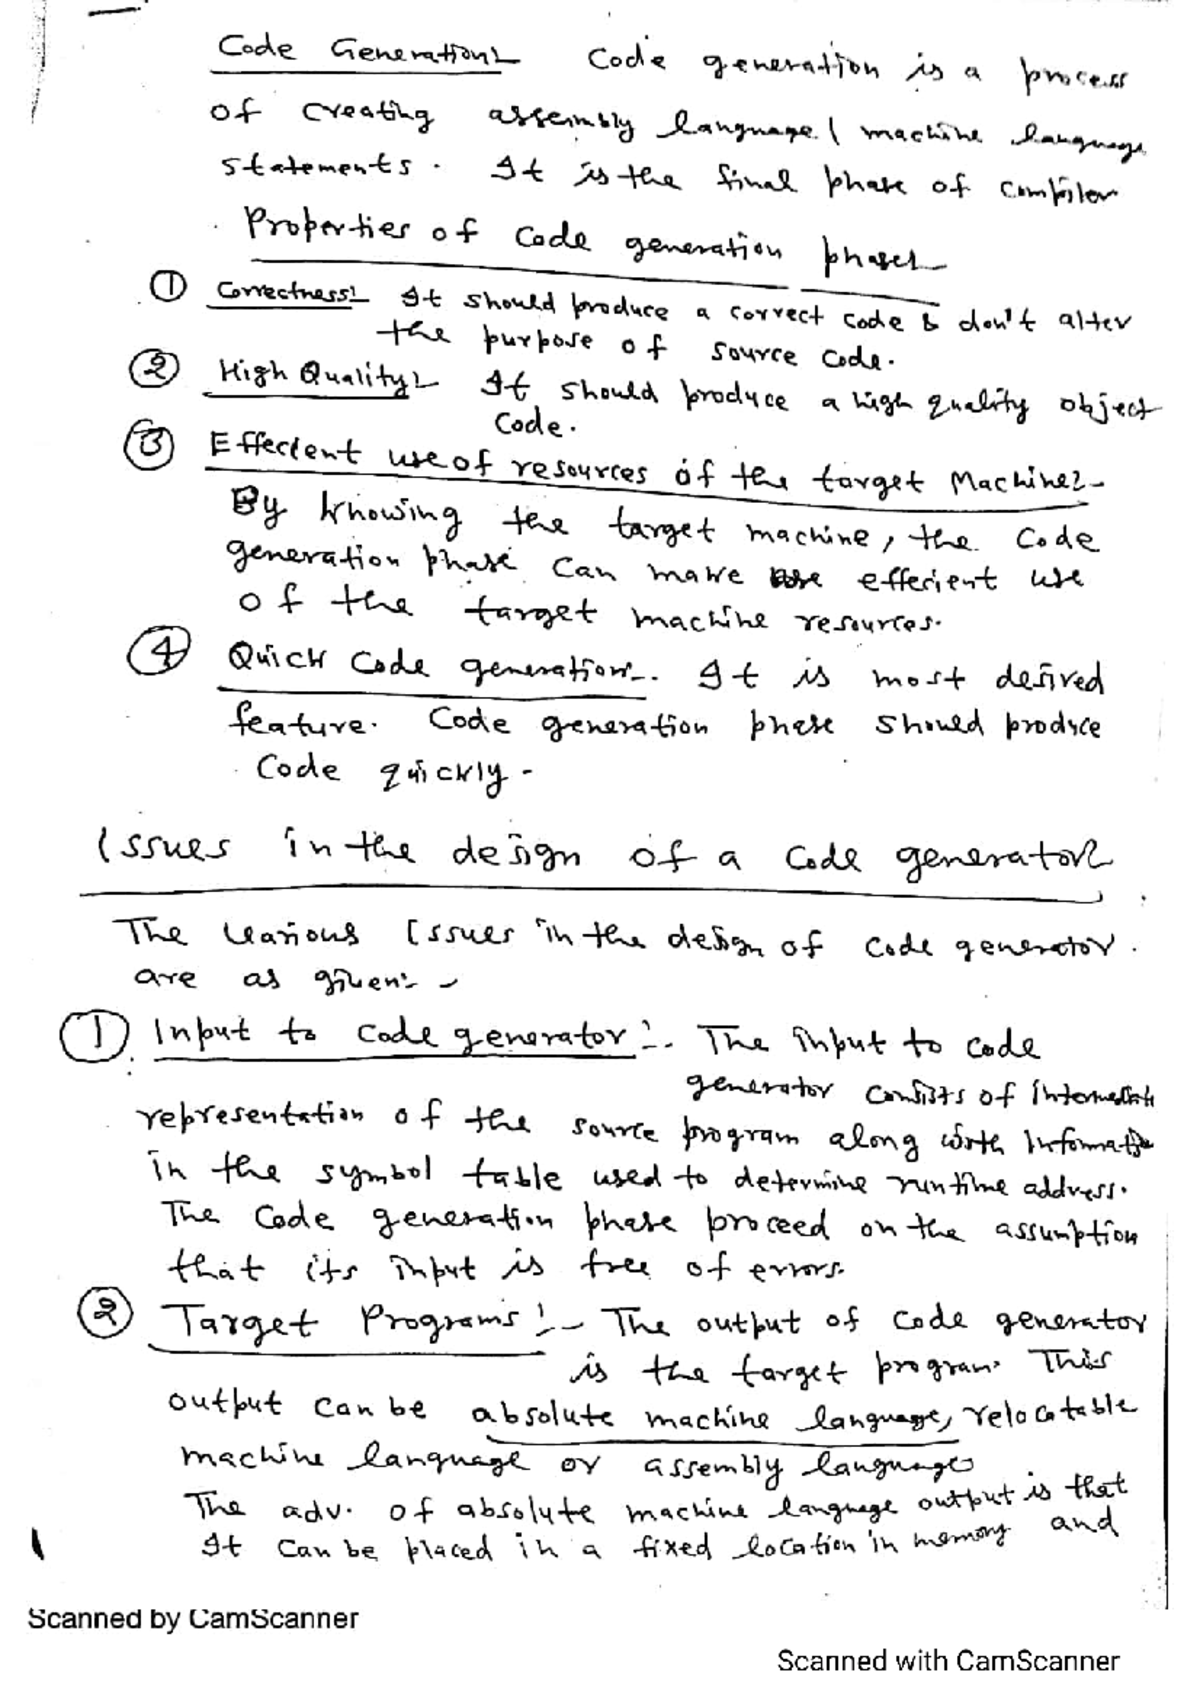 Code Generation:- Code generation is a process
of creating assembly language / machine language
statements. It is the final phase of compiler
Properties of Code generation phase:-
① Correctness:- It should produce a correct code & don't alter
the purpose of source code.
② High Quality:- It should produce a high quality object
Code.
③ Effecient use of resources of the target Machine:-
By knowing the target machine, the code
generation phase can make use effecient use
of the target machine resources.
④ Quick Code generation:- It is most desired
feature. Code generation phase should produce
Code quickly.
Issues in the design of a Code generator:-
The various Issues in the design of code generator.
are as given:-
① Input to code generator:- The input to code
generator consists of intermediate
representation of the source program along with Information
in the symbol table used to determine runtime address.
The Code generation phase proceed on the assumption
that its input is free of errors.
② Target Programs:- The output of code generator
is the target program. This
output can be absolute machine language, relocatable
machine language or assembly language
The adv. of absolute machine language output is that
It can be placed in a fixed location in memory and
Scanned by CamScanner
Scanned with CamScanner